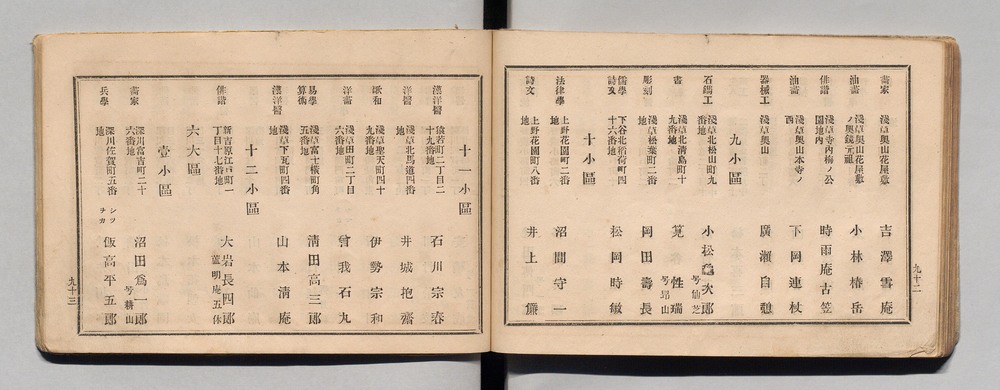 畵家 淺草奥山花屋敷 吉澤雪庵
油畵 淺草奥山花屋敷ノ奥鏡元祖 小林椿岳
俳諧 淺草寺內梅ノ公園內 時雨庵古笠
油畵 淺草奥山本寺ノ西 下岡連杖
器械工 淺草奥山 廣瀬自憩
九小區
石鐫工 淺草北松山町九番地 小松 次郎 号仙芝
書 淺草北淸島町十九番地 筧性瑞 号昻山
彫刻 淺草松葉町二番地 岡田壽長
儒學 詩文 下谷北稻荷町四十六番地 松岡時敏
十小區
法律學 上野花園町二番地 沼間守一
詩文 上野花園町八番地 井上簾
九十二
十一小區
漢洋醫 猿若町二丁目二十九番地 石川宗春
洋醫 淺草北馬道四番地 井城抱齋
歌和 淺草聖天町四十九番地 伊勢宗和
洋畵 淺草田町二丁目六番地 曾我石丸
易學 算術 淺草富士橫町角五番地 淸田高三郞
漢洋醫 淺草下瓦町四番地 山本淸庵
十二小區
俳諧 新吉原江戸町一丁目十七番地 大岩長四郞 藍明庵五休
六大區
壹小區
畵家 深川富吉町二十六番地 沼田爲一郞 号耕山
兵學 深川佐賀町五番地 飯高平五郞
九十三